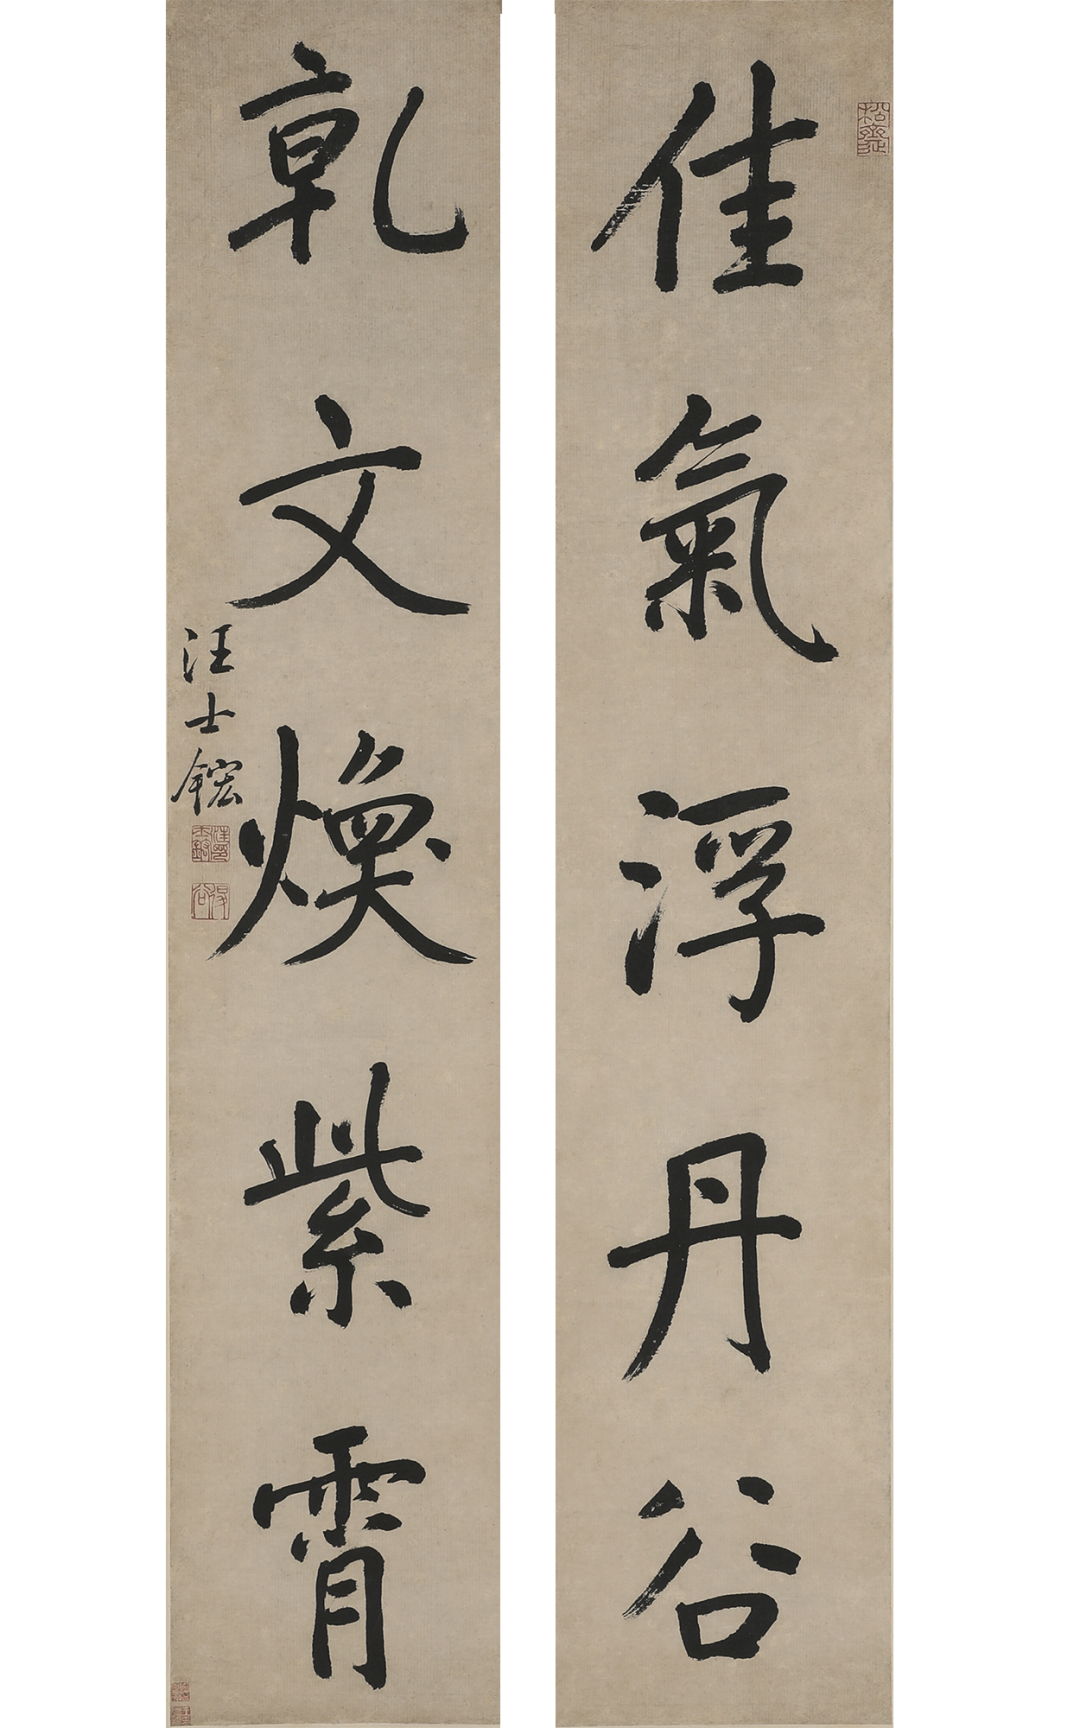 佳氣浮丹谷
乾文煥紫霄
汪士鋐
松齋